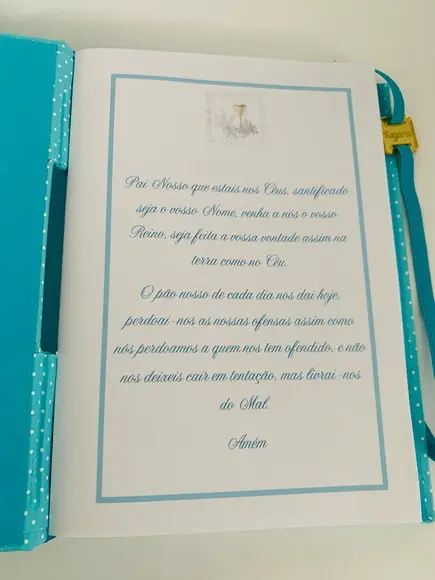 Pai Nosso que estais nos Céus, santificado
seja o vosso Nome, venha a nós o vosso
Reino, seja feita a vossa vontade assim na
terra como no Céu.
O pão nosso de cada dia nos dai hoje,
perdoai-nos as nossas ofensas assim como
nós perdoamos a quem nos tem ofendido, e não
nos deixeis cair em tentação, mas livrai-nos
do Mal.
Amém